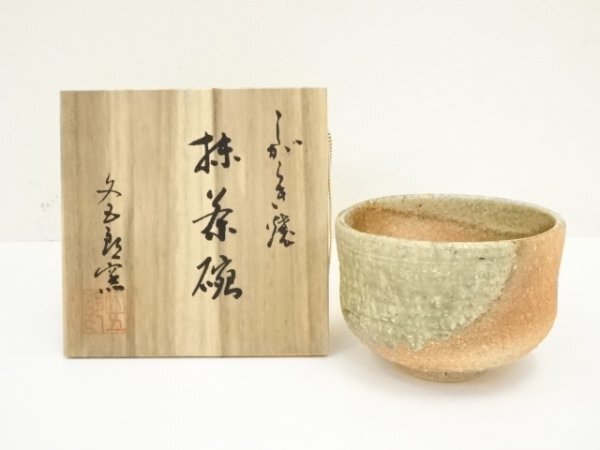 しがらき焼
抹茶碗
文五郎窯